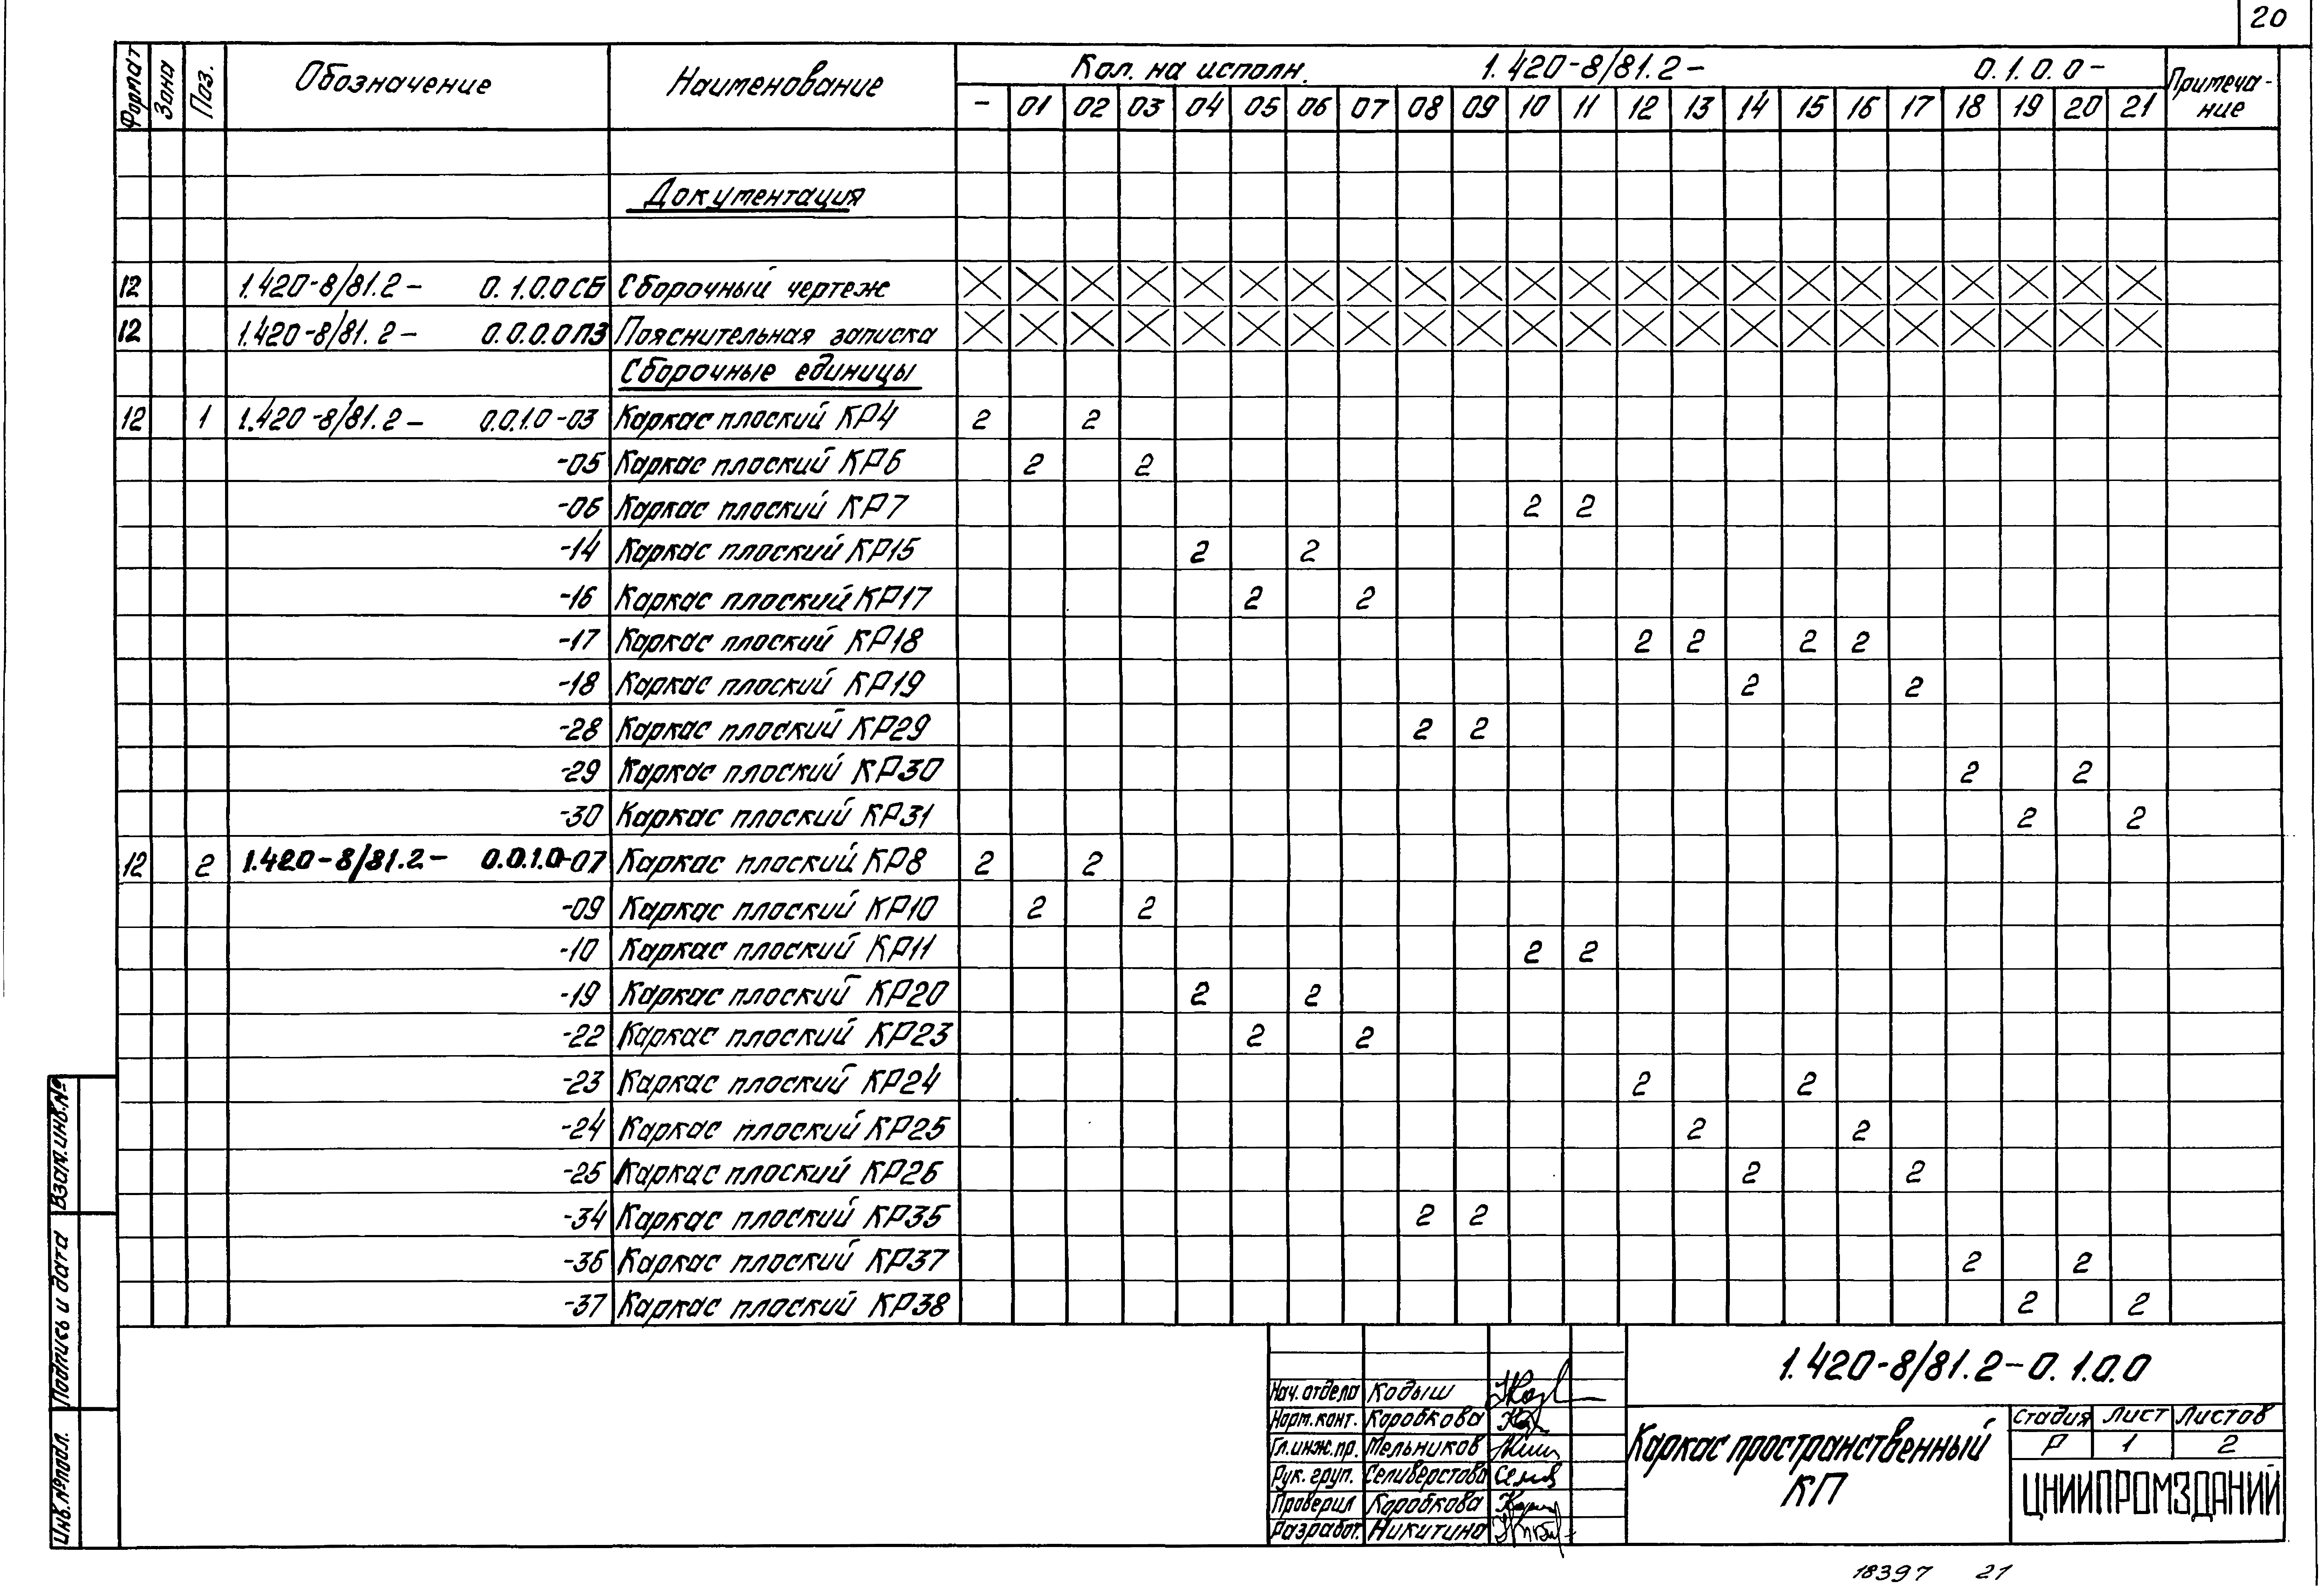 20
Формат Зона Поз. Обозначение Наименование Кол. на исполн. 1.420-8/81.2- 0.1.0.0- Примеча-
ние
- 01 02 03 04 05 06 07 08 09 10 11 12 13 14 15 16 17 18 19 20 21
Документация
12 1.420-8/81.2- 0.1.0.0СБ Сборочный чертеж
12 1.420-8/81.2- 0.0.0.0ПЗ Пояснительная записка
Сборочные единицы
12 1 1.420-8/81.2- 0.0.1.0-03 Каркас плоский КР4 2 2
-05 Каркас плоский КР6 2 2
-06 Каркас плоский КР7 2 2
-14 Каркас плоский КР15 2 2
-16 Каркас плоский КР17 2 2
-17 Каркас плоский КР18 2 2 2 2
-18 Каркас плоский КР19 2 2
-28 Каркас плоский КР29 2 2
-29 Каркас плоский КР30 2 2
-30 Каркас плоский КР31 2 2
12 2 1.420-8/81.2- 0.0.1.0-07 Каркас плоский КР8 2 2
-09 Каркас плоский КР10 2 2
-10 Каркас плоский КР11 2 2
-19 Каркас плоский КР20 2 2
-22 Каркас плоский КР23 2 2
-23 Каркас плоский КР24 2 2
-24 Каркас плоский КР25 2 2
-25 Каркас плоский КР26 2 2
-34 Каркас плоский КР35 2 2
-36 Каркас плоский КР37 2 2
-37 Каркас плоский КР38 2 2
Взам.инв.№
Подпись и дата
Инв.№подл.
Нач.отдела Кодыш
Норм.конт. Коробкова
Гл.инж.пр. Мельников
Рук.груп. Селиверстова
Проверил Коробкова
Разработ. Никитина
1.420-8/81.2-0.1.0.0
Каркас пространственный
КП
Стадия Лист Листов
Р 1 2
ЦНИИПРОМЗДАНИЙ
18397 21